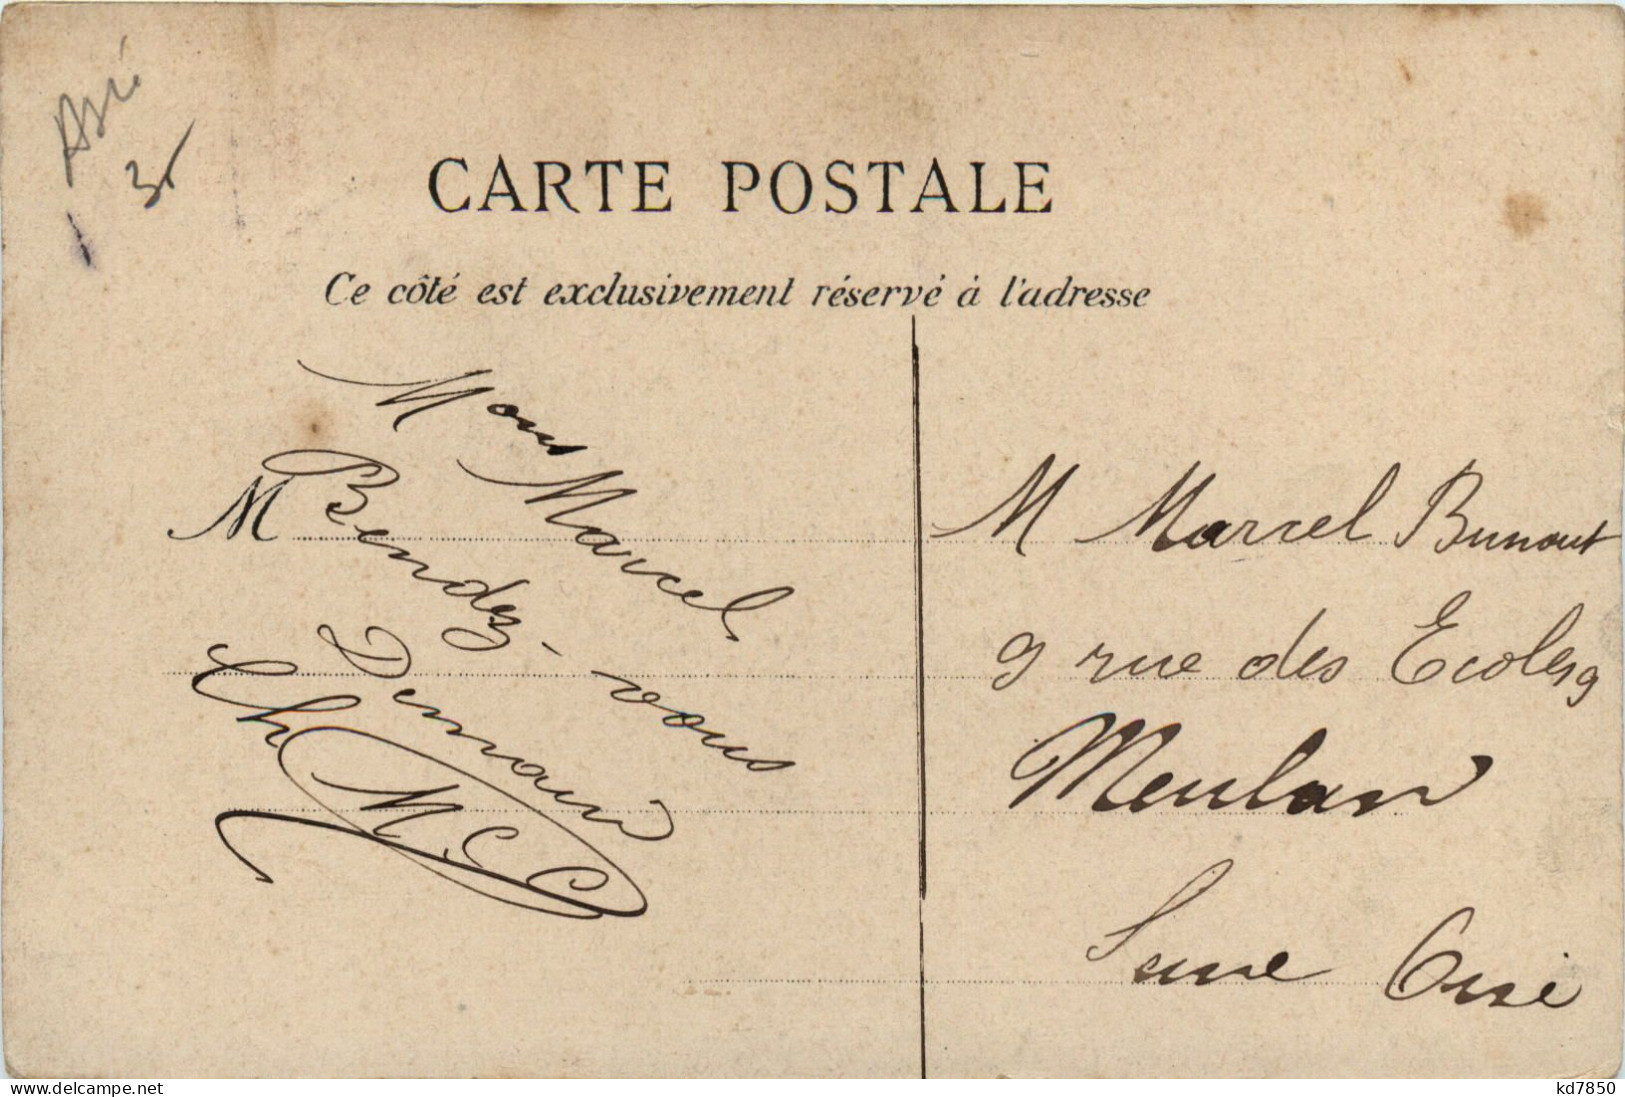 3
CARTE POSTALE
Ce côté est exclusivement réservé à l'adresse
Mons Marcel
M
Rendez-vous
Demain
Ch
M Marcel Bunout
9 rue des Ecoles 9
Meulan
Seine Oise
delcampe.net
kd7850